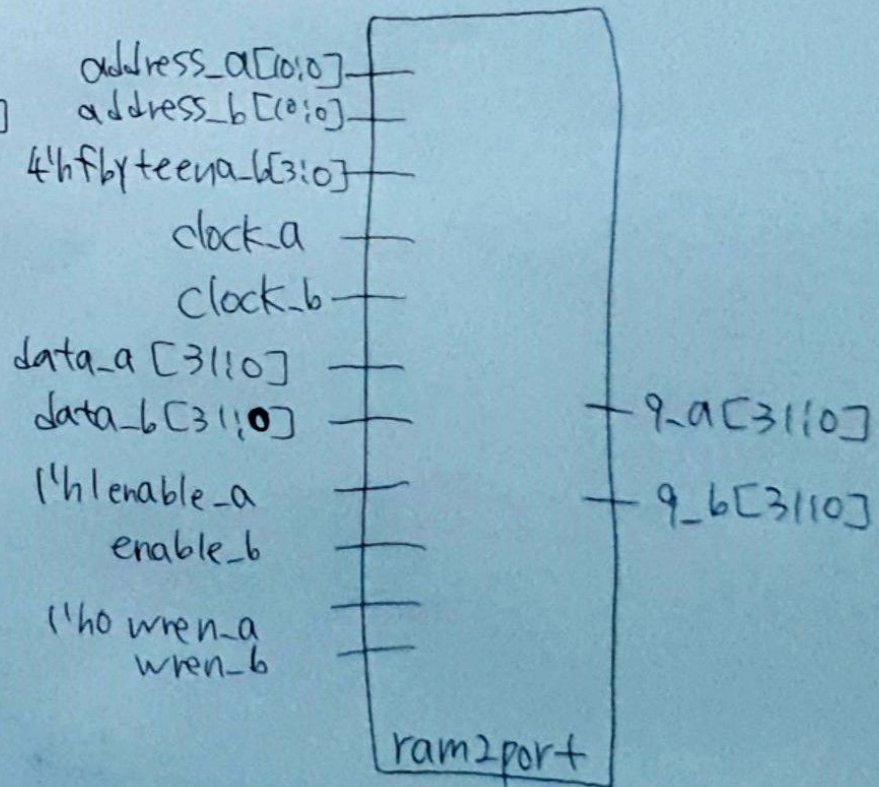 address_a[10:0]
]
address_b[10:0]
4'hf byteena_b[3:0]
clock_a
clock_b
data_a [31:0]
data_b[31:0]
1'h1 enable_a
enable_b
1'h0 wren_a
wren_b
q_a[31:0]
q_b[31:0]
ram2port